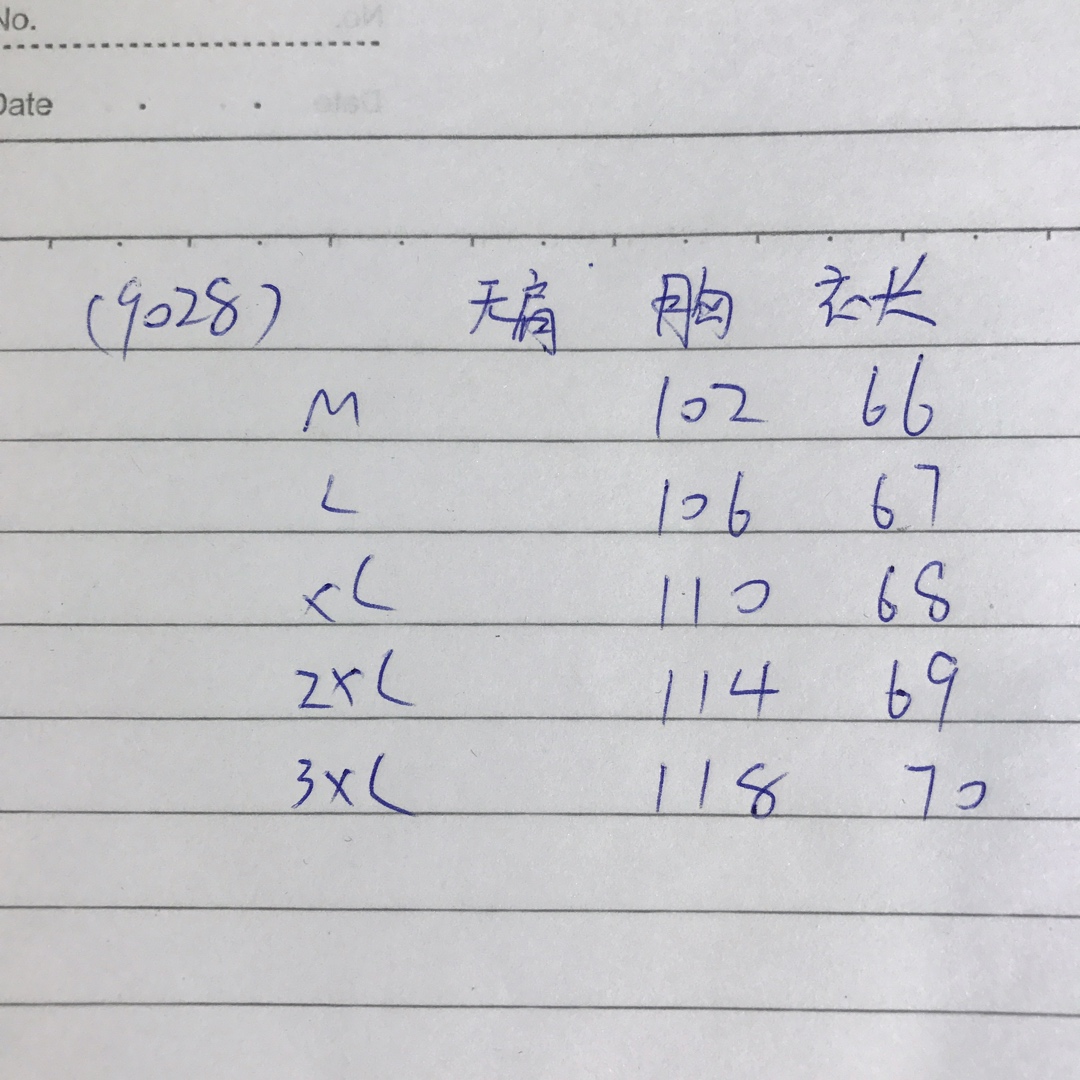 No.
Date
(9028) 无肩 胸 衣长
M 102 66
L 106 67
XL 110 68
2XL 114 69
3XL 118 70